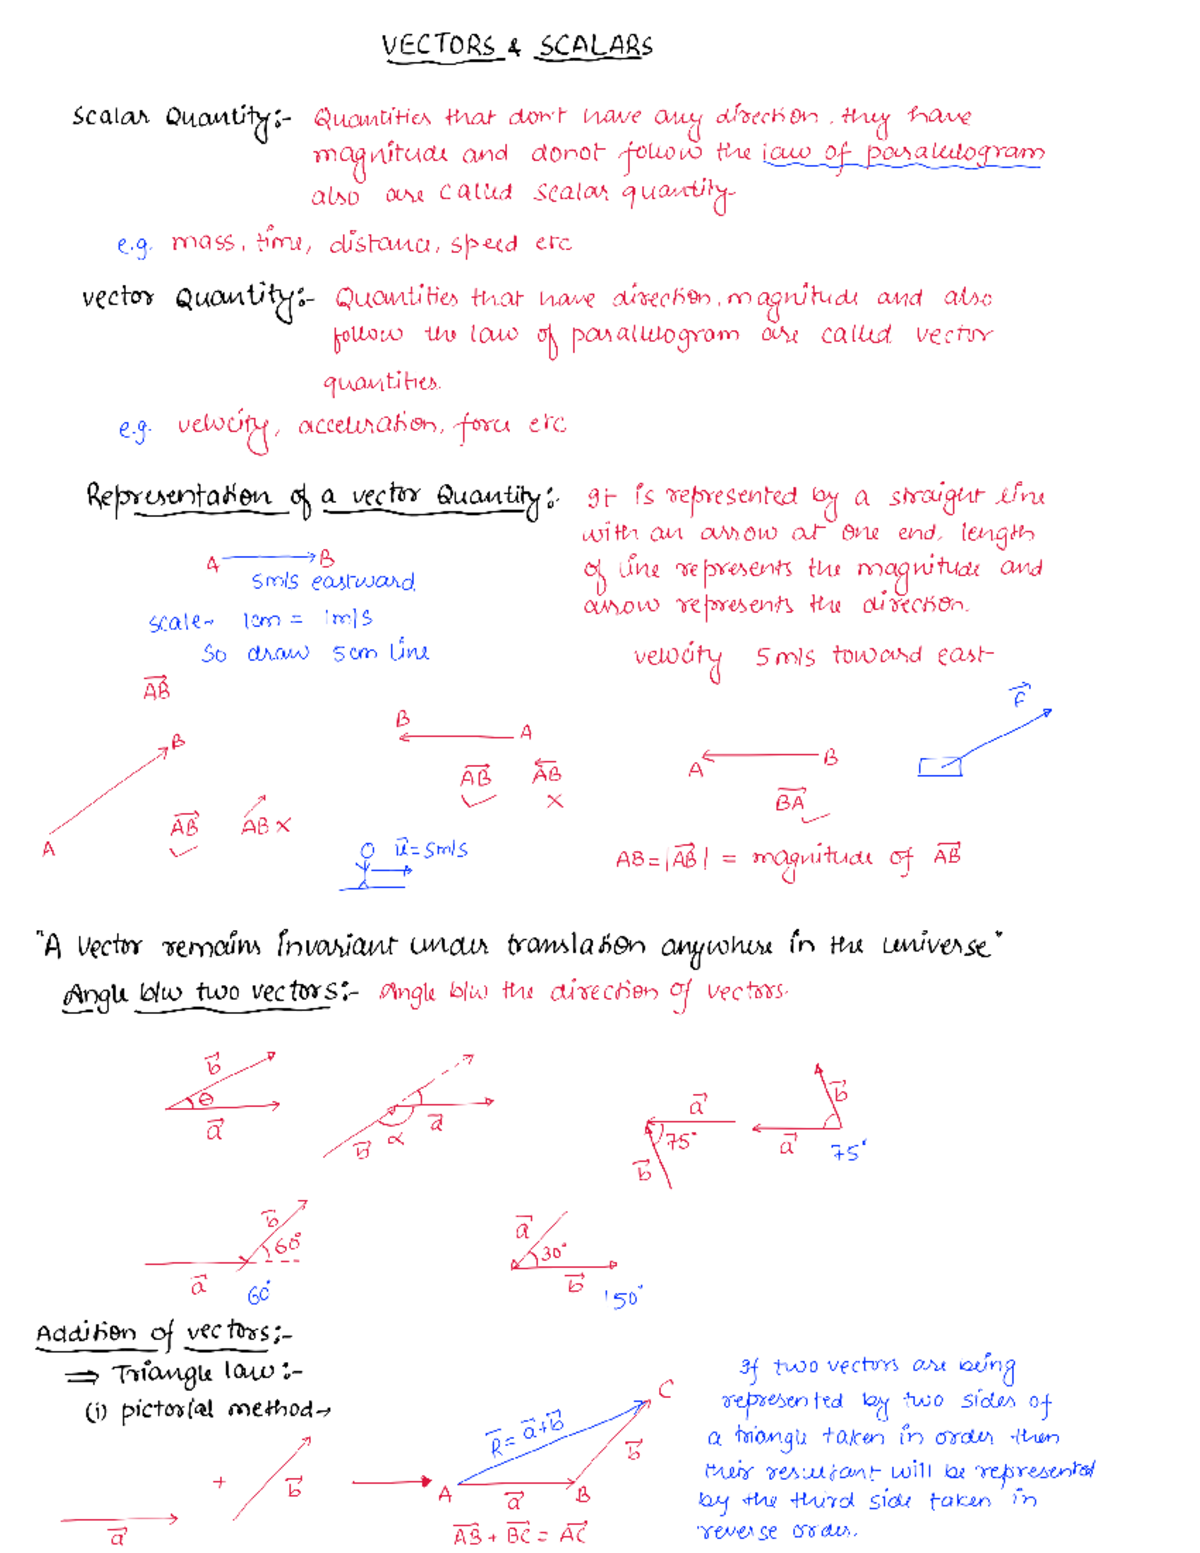 VECTORS & SCALARS
Scalar Quantity:- Quantities that don't have any direction. they have
magnitude and donot follow the law of parallelogram
also are called scalar quantity
e.g. mass, time, distance, speed etc
vector Quantity:- Quantities that have direction, magnitude and also
follow the law of parallelogram are called vector
quantities.
e.g. velocity, acceleration, force etc
Representation of a vector Quantity:- It is represented by a straight line
with an arrow at one end. length
of line represents the magnitude and
arrow represents the direction.
A B
5m/s eastward
scale- 1cm = 1m/s
So draw 5cm line
velocity 5m/s toward east
A⃗B⃗
A B
A⃗B⃗ AB ×
B A
A⃗B⃗ A⃖B⃖ ×
A B
B⃗A⃗
F⃗
u⃗=5m/s
AB=|A⃗B⃗| = magnitude of A⃗B⃗
"A Vector remains invariant under translation anywhere in the universe"
Angle b/w two vectors:- Angle b/w the direction of vectors.
b⃗ θ a⃗
b⃗ α a⃗
a⃗ 75° b⃗
b⃗ a⃗ 75°
b⃗ 60° a⃗ 60°
a⃗ 30° b⃗ 150°
Addition of vectors:-
⇒ Triangle law:-
(i) pictorial method→
a⃗ + b⃗
R⃗=a⃗+b⃗
A a⃗ B b⃗ C
A⃗B⃗ + B⃗C⃗ = A⃗C⃗
If two vectors are being
represented by two sides of
a triangle taken in order then
their resultant will be represented
by the third side taken in
reverse order.